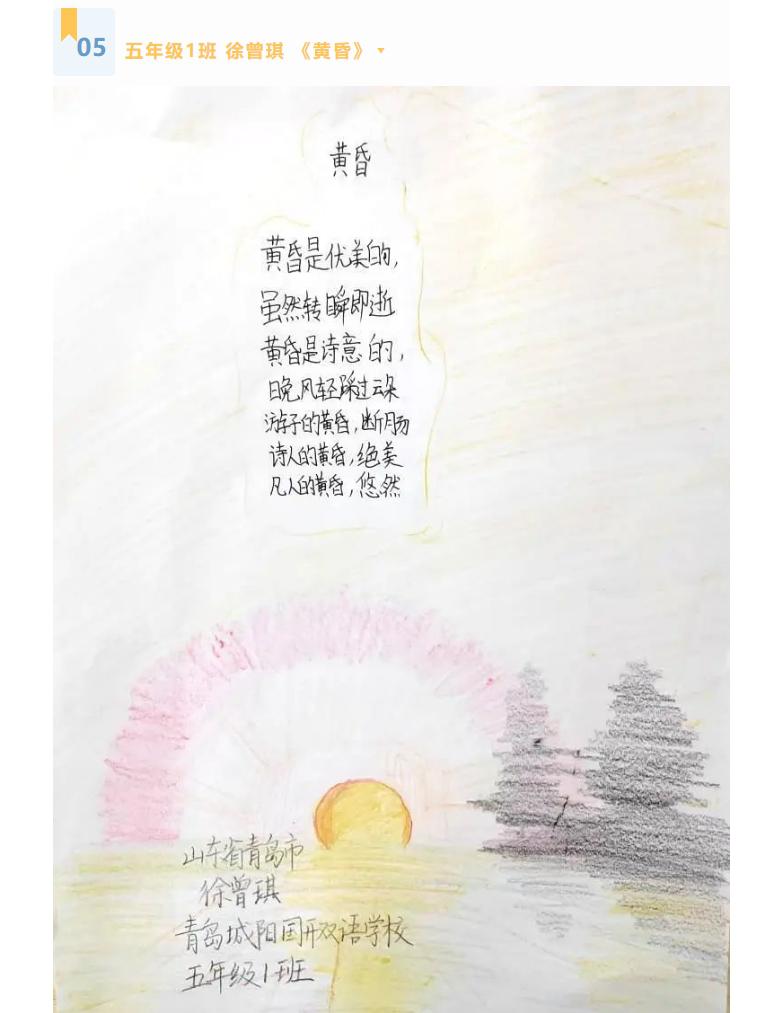 05
五年级1班 徐曾琪 《黄昏》
黄昏
黄昏是优美的,
虽然转瞬即逝
黄昏是诗意的,
晚风轻踩过云朵
游子的黄昏,断肠
诗人的黄昏,绝美
凡人的黄昏,悠然
山东省青岛市
徐曾琪
青岛城阳国开双语学校
五年级1班